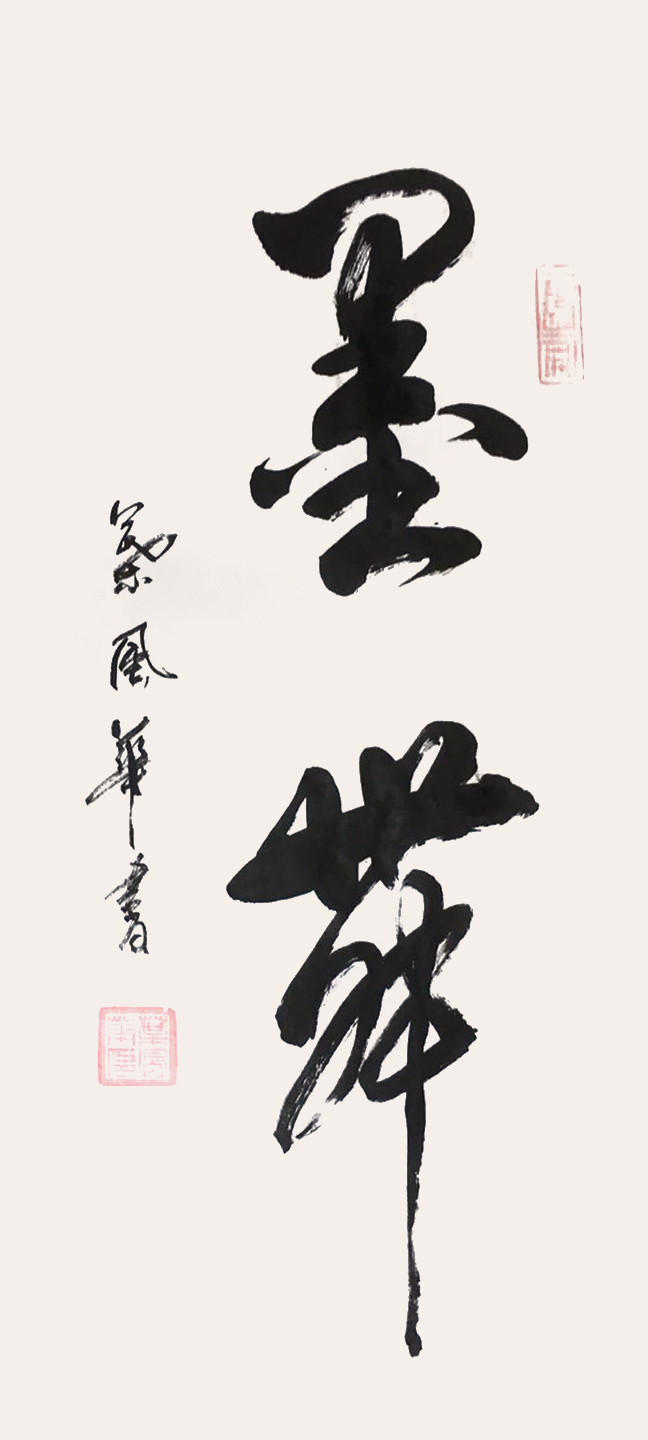 墨舞
葉風華書